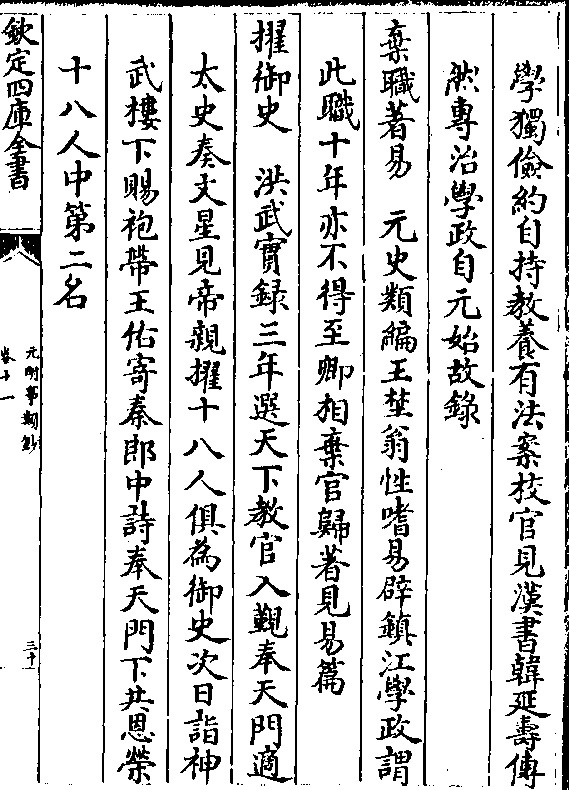 學獨儉約自持教養有法案校官見漢書韓延壽傳
然專治學政自元始故錄
棄職著易　元史類編王埜翁性嗜易辟鎮江學政謂
此職十年亦不得至卿相棄官歸著見易篇
擢御史　洪武實録三年選天下教官入覲奉天門適
太史奏文星見帝親擢十八人俱為御史次日詣神
武樓下賜袍帶王佑寄秦郎中詩奉天門下共恩榮
十八人中第二名
欽定四庫全書
元明事類鈔
卷十一
三十